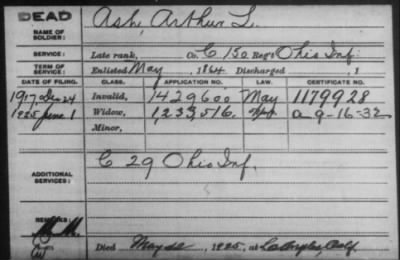 DEAD Ash, Arthur L.
NAME OF SOLDIER:
SERVICE: Late rank, Co. C 150 Reg't Ohio Inf.
TERM OF SERVICE: Enlisted May , 1864 Discharged , 1
DATE OF FILING. CLASS. APPLICATION NO. LAW. CERTIFICATE NO.
1917, Dec 24 Invalid, 1429600 May 1179928
1925 June 1 Widow, 1,233,516. a 9-16-32
Minor,
ADDITIONAL SERVICES: C 29 Ohio Inf.
REMARKS:
Died May , 1925, at Calif.